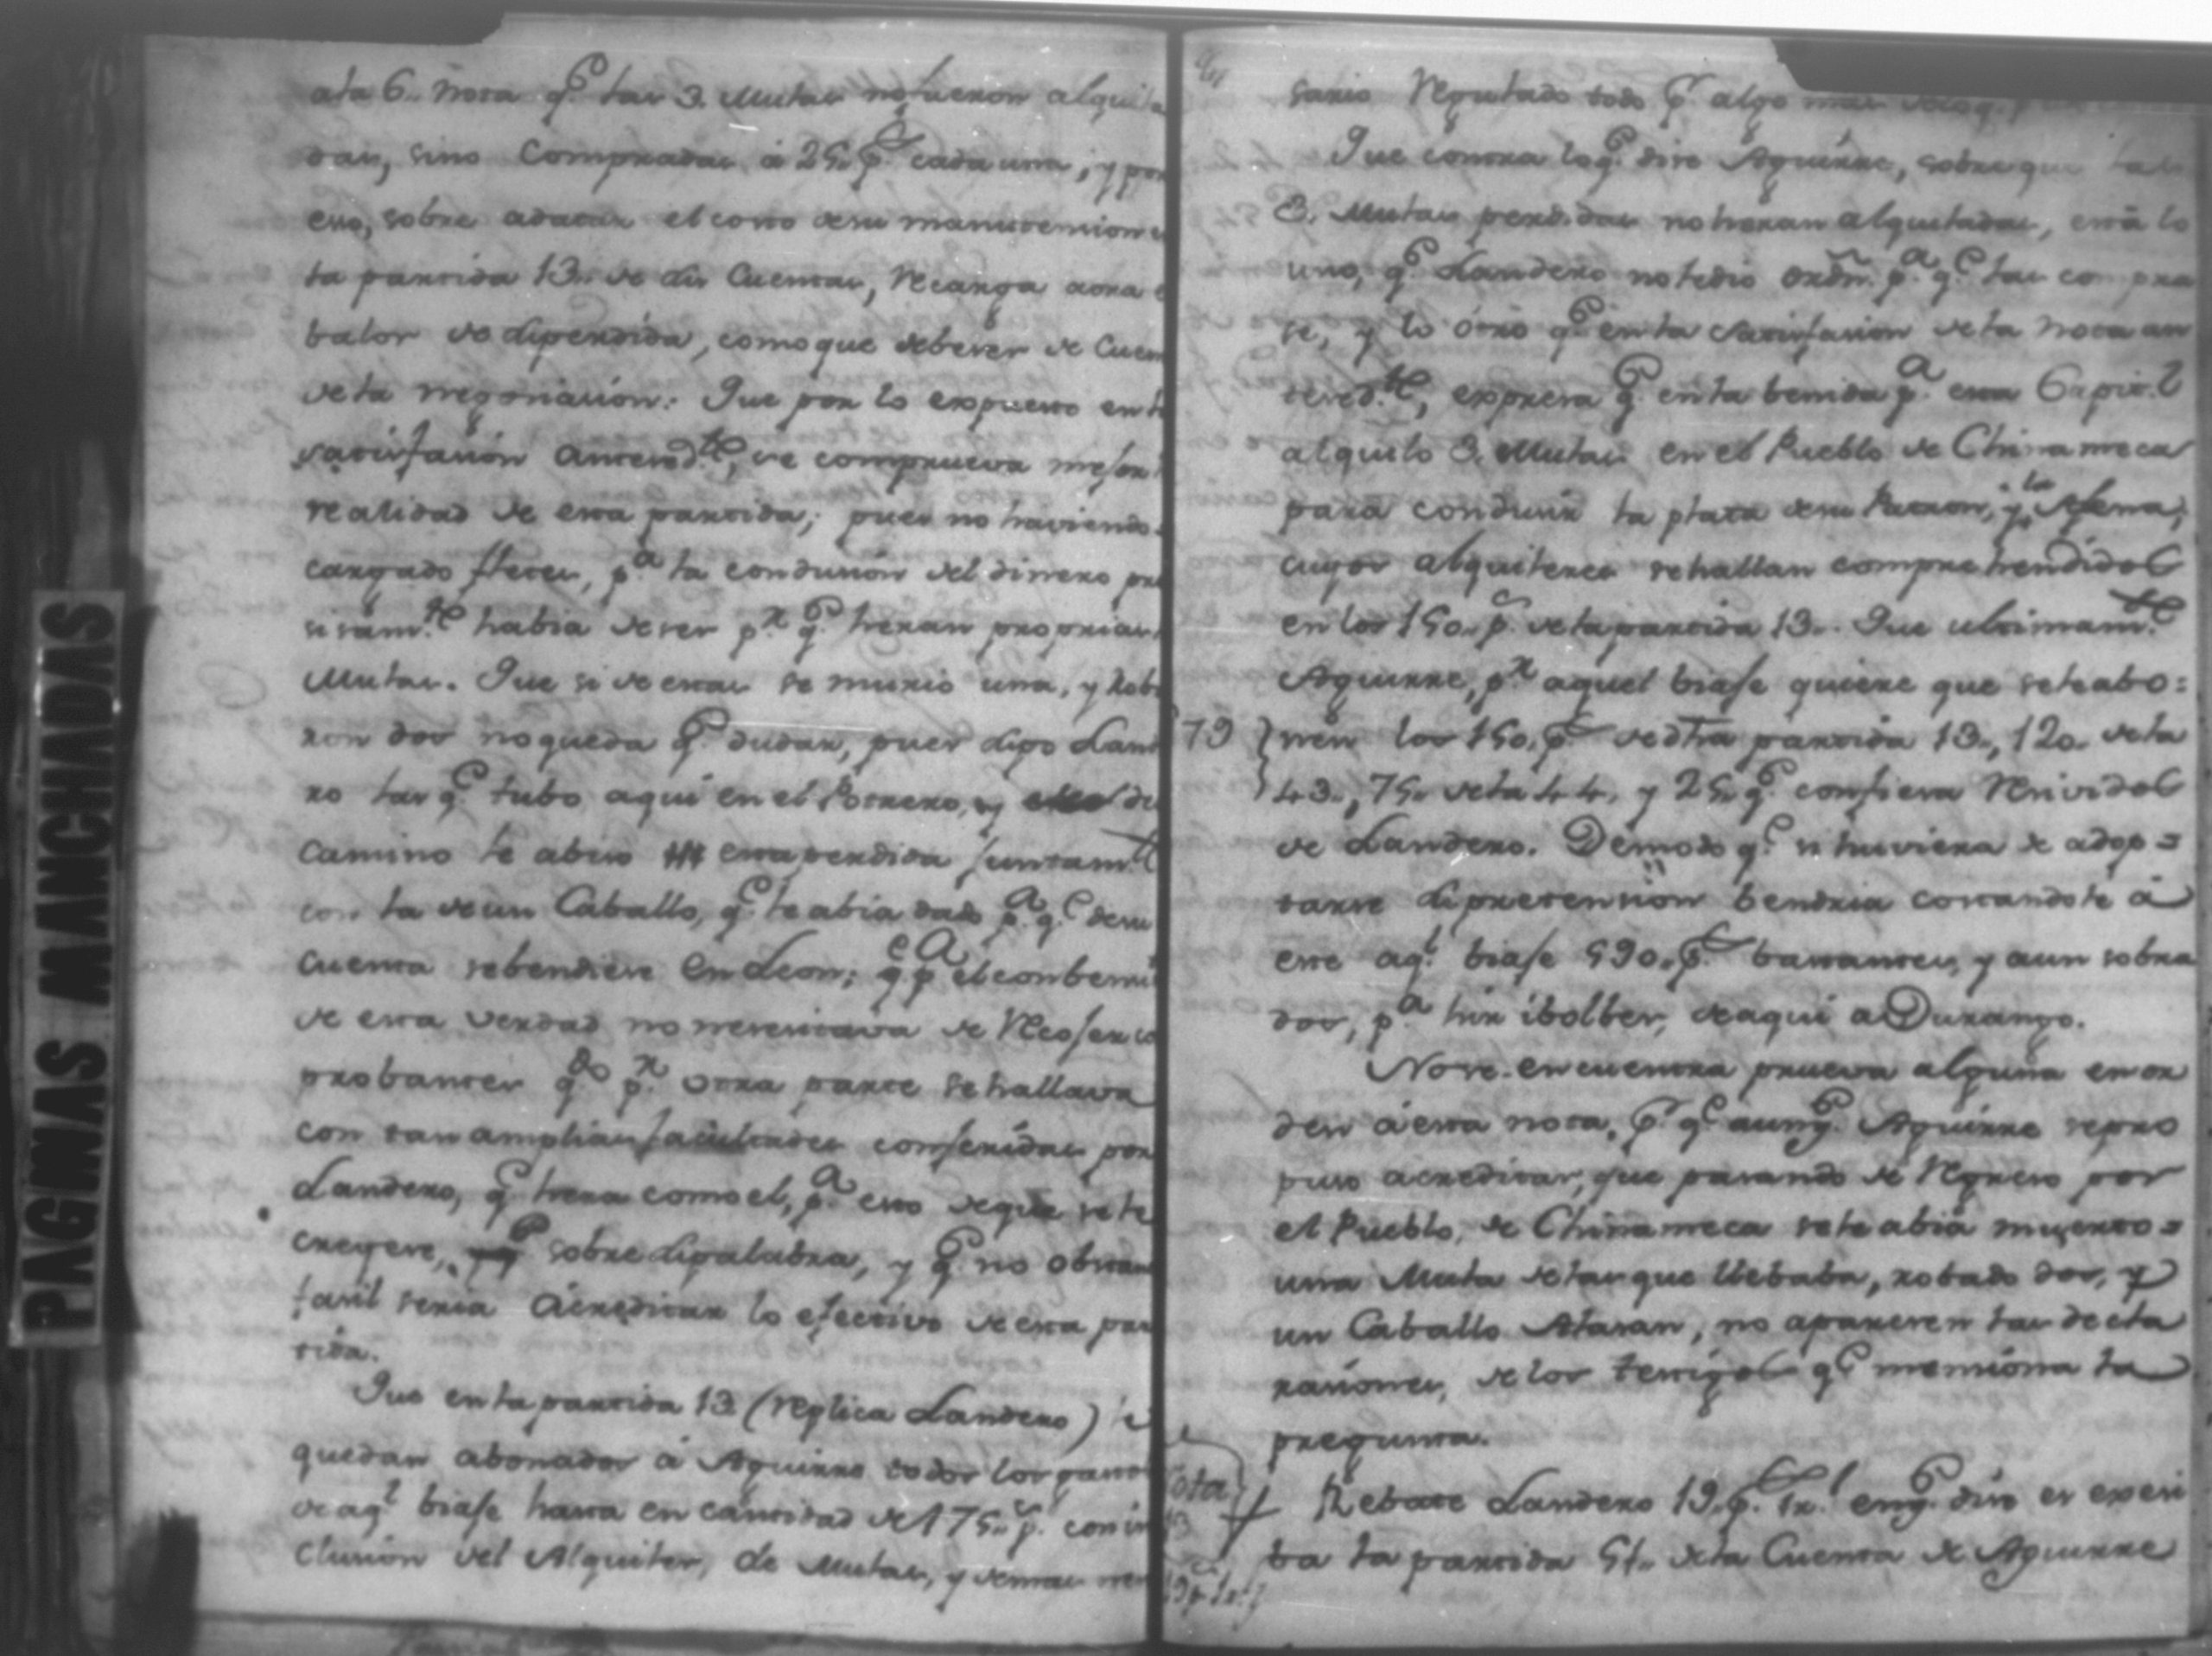 ata 6. nota q.e las 3. Mulas no fueron alquila
das, sino Compradas á 25. p.s cada una, y por
eso, sobre adatar el costo de su manutencion en
la partida 13. de sus Cuentas, Recarga aora el
balor de su perdida, como que deve ser de Cuen
de la negociacion: Que por lo expuesto en la
satisfacion Anteced.te, se comprueva mejor
realidad de esta partida; pues no haviendo
cargado fletes, p.a la conducion del dinero pre
sisam.te habia de ser p.r q.e heran proprias
Mulas. Que si de estas se murio una, y Roba
ron dos no queda q.e dudar, pues dijo Lande
ro las q.e tubo aqui en el Potrero, y del
Camino le abiso esta perdida juntam.te
con la de un Caballo, q.e le abia dado p.a q.e de su
cuenta se bendiese en Leon; q.e p.a el conbenci
de esta verdad no necesitava de Recojer co
probantes q.do p.r otra parte se hallava
con tan amplias facultades conferidas por
Landero, q.e hera como el, p.a esto de que se le
creyese, sobre su palabra, y q.e no obstan
facil seria Acreditar lo efectivo de esta par
tida.
Que en la partida 13 (replica Landero) le
quedan abonados á Aguirre todos los gastos
de aq.l biaje hasta en cantidad de 175. p.s con in
clusion del Alquiler, de Mulas, y demas nece
sario Reputado todo p.r algo mas
Que contra lo q.e dice Aguirre, sobre que las
3. Mulas perdidas no heran alquiladas, está lo
uno, q.e Landero no le dio ordn. p.a q.e las compra
se, y lo otro q.e en la Satisfacion de la nota an
teced.te, expresa q.e en la benida p.a esta Capit.l
alquilo 3. Mulas en el Pueblo de Chinameca
para conducir la plata de su Patron, y la Agena;
cuyos alquileres se hallan comprehendidos
en los 150. p.s de la partida 13.. Que ultimam.te
Aguirre, p.r aquel biaje quiere que se le abo=
19 } nen los 150. p.s de dha partida 13., 120. de la
43., 75. de la 44. y 25. q.e confiesa Recividos
de Landero. Demodo q.e si huviera de adop=
tarse su pretension bendria costandole á
este aq.l biaje 590. p.s bastantes, y aun sobra
dos, p.a hir i bolber, de aqui a Durango.
No se encuentra prueva alguna en or
den á esta nota, p.r q.e aunq.e Aguirre repro
puso acreditar, que pasando de Regreso por
el Pueblo, de Chinameca se le abia muerto=
una Mula de las que llebaba, robado dos, y
un Caballo Alazan, no aparecen las decla
raciones, de los testigos q.e menciona la
pregunta.
ota
Rebate Landero 19. p.s 1 r.l en q.e dice es exesi
ba la partida 51. de la Cuenta de Aguirre
19 p. 1 r.
PAGINAS MANCHADAS